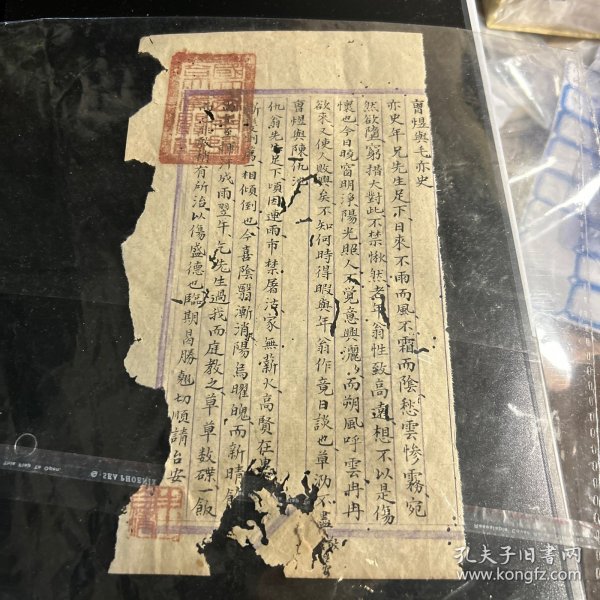 曹煜與毛亦史
亦史年兄先生足下日來不雨而風不霜而陰愁雲慘霧宛
然欲墮窮措大對此不禁愀然老年翁性致高遠想不以是傷
懷也今日曉窗明淨陽光照人不覺意興灑灑而朔風呼雲冉冉
欲來又使人敗興矣不知何時得暇與年翁作竟日談也草沥不盡
曹煜與陳仇
仇翁先生足下頃因連雨市禁屠沽家無薪火高賢在
相傾倒也今喜陰翳漸消陽烏曜魄而新晴
成雨翌午乞先生過我而庭教之草草数碟一飯
有所治以傷盛德也臨期曷勝翹切順請台安
孔夫子旧書网
www.kongfz.com